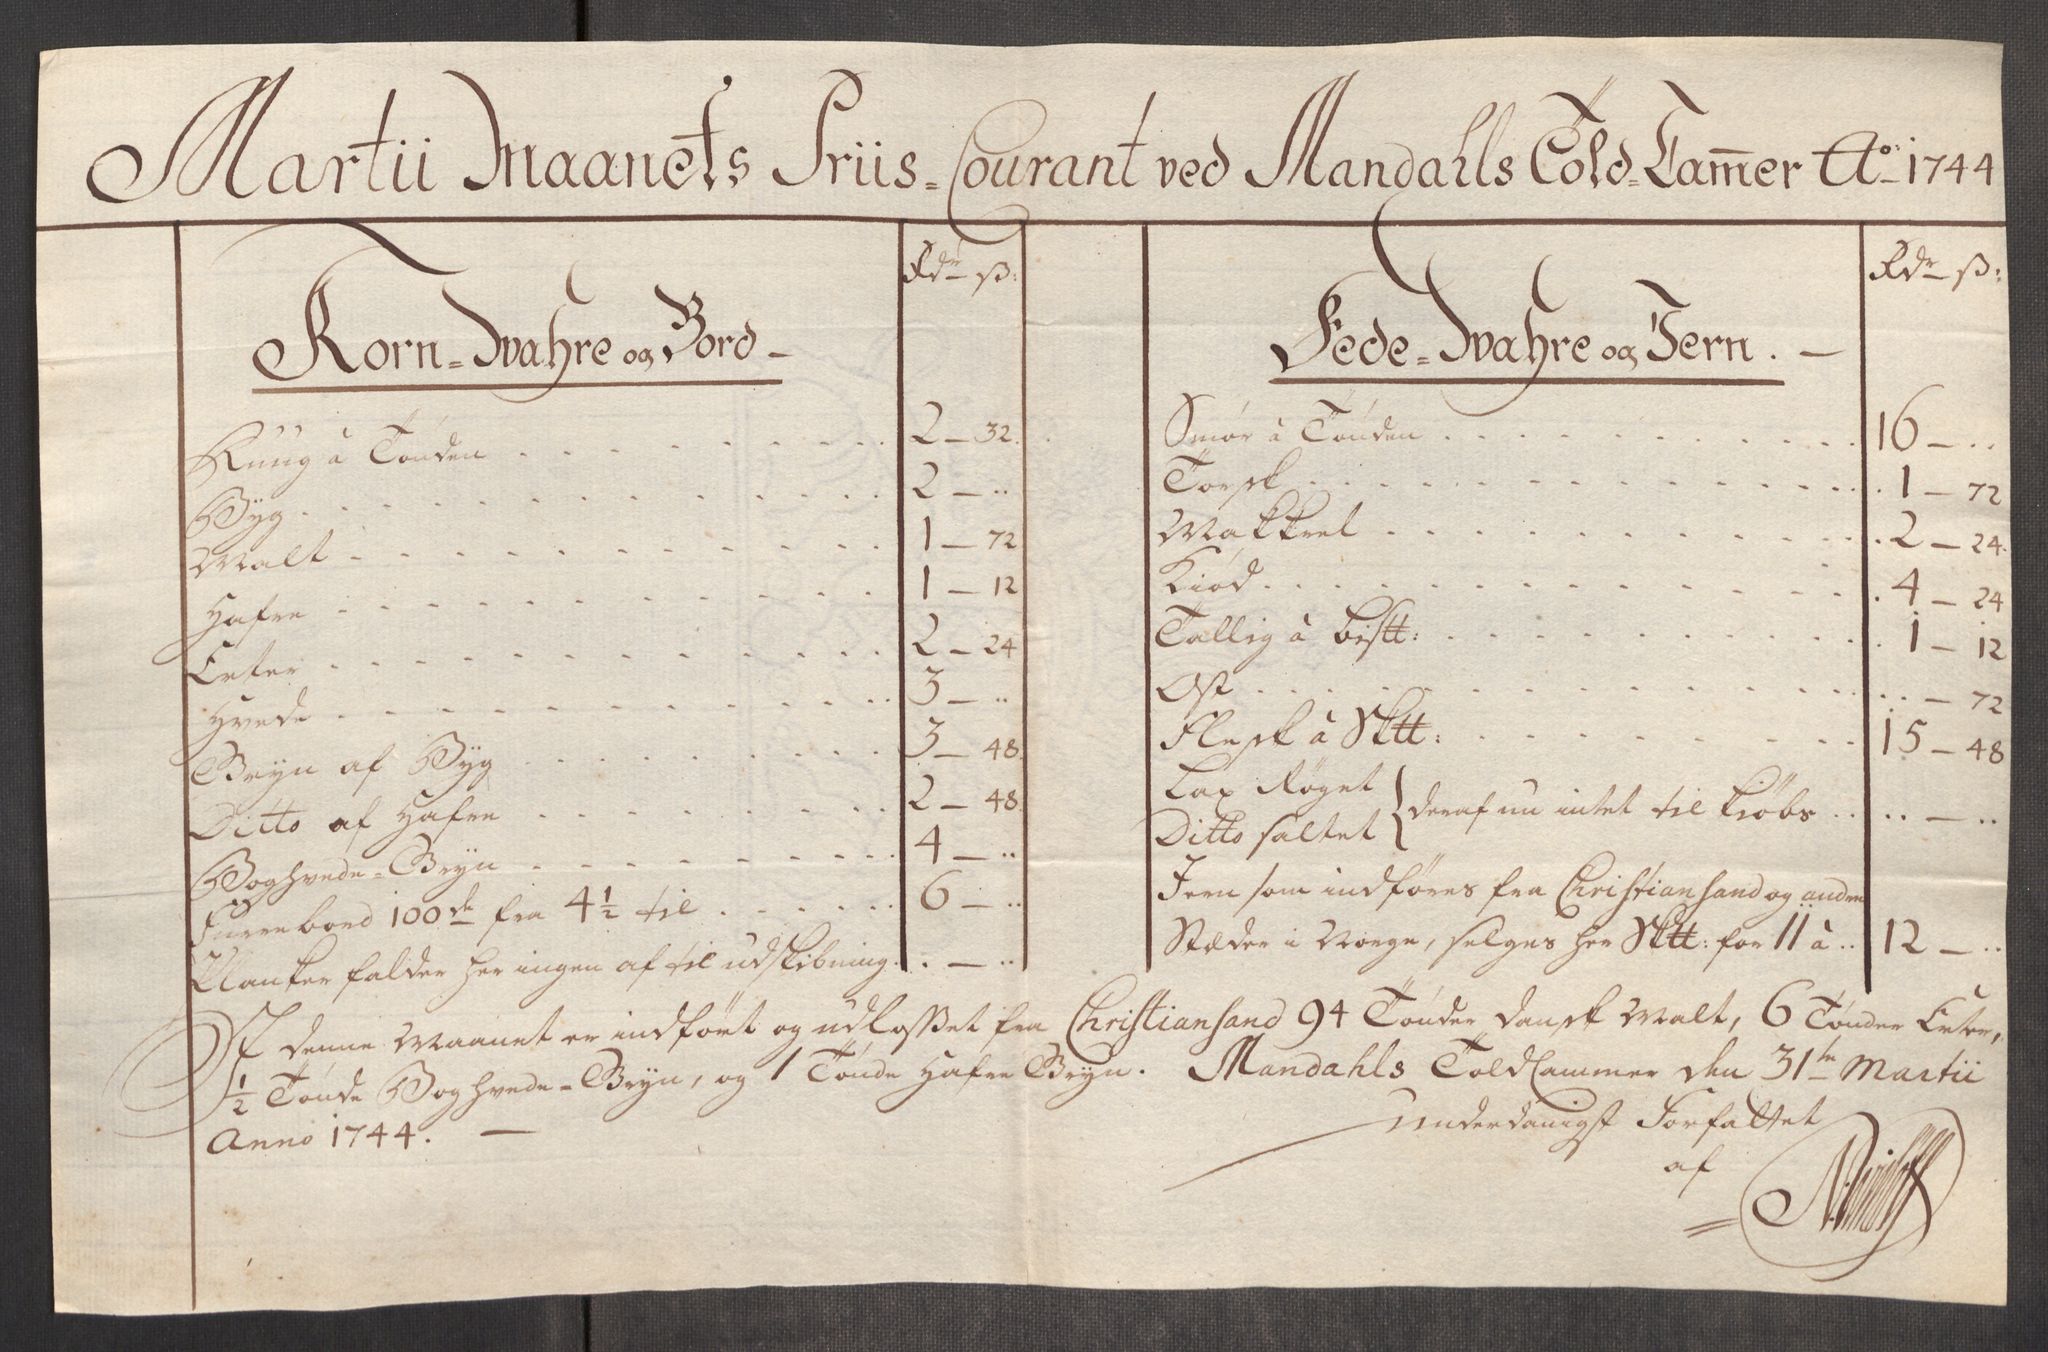 Martii Maanets Priis-Courant ved Mandahls Told-Cam̄er Ao: 1744
Rdr ß:
Korn-Wahre og Bord
Ruug à Tønden 2 - 32.
Byg 2 - ..
Malt 1 - 72
Hafre 1 - 12
Erter 2 - 24
Hvede 3 - ..
Gryn af Byg 3 - 48.
Ditto af Hafre 2 - 48.
Boghvede-Gryn 4 - ..
Furre bord 100de fra 4½ til 6 - ..
Planker falder her ingen af til udskibning. .. - ..
Rdr ß:
Fede-Wahre og Jern.
Smør à Tønden 16 - ..
Torsk 1 - 72
Makkrel 2 - 24.
Kiød 4 - 24
Tallig à bis℔: 1 - 12
Ost .. - 72
Flesk à Sk℔: 15 - 48
Lax Røget
Ditto saltet } deraf nu intet til kiøbs .. - ..
Jern som indføres fra Christiansand og andre
Stæder i Norge, selges her Sk℔: for 11 à .. 12 - ..
I denne Maanet er indført og udlosset fra Christiansand 94 Tønder dansk Malt, 6 Tønder Erter,
½ Tønde Boghvede-Gryn, og 1 Tønde Hafre Gryn. Mandahls Told Cammer den 31te Martii
Anno 1744.
Underdanigst Forfattet
af